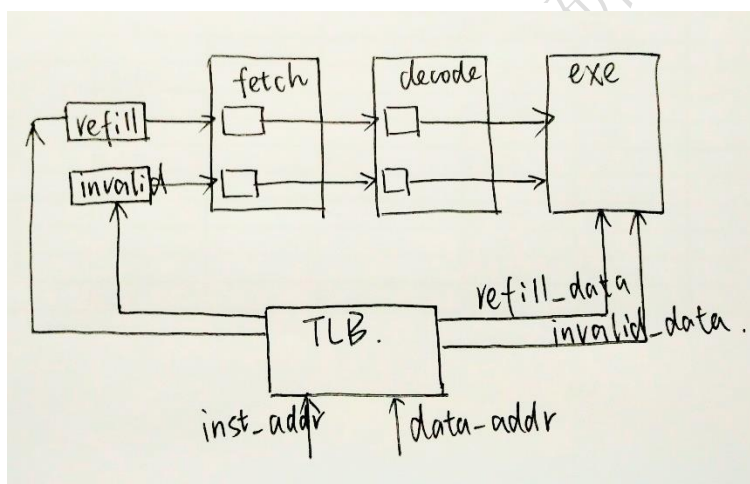 fetch
decode
exe
refill
invalid
refill_data
TLB.
invalid_data.
inst_addr
data-addr